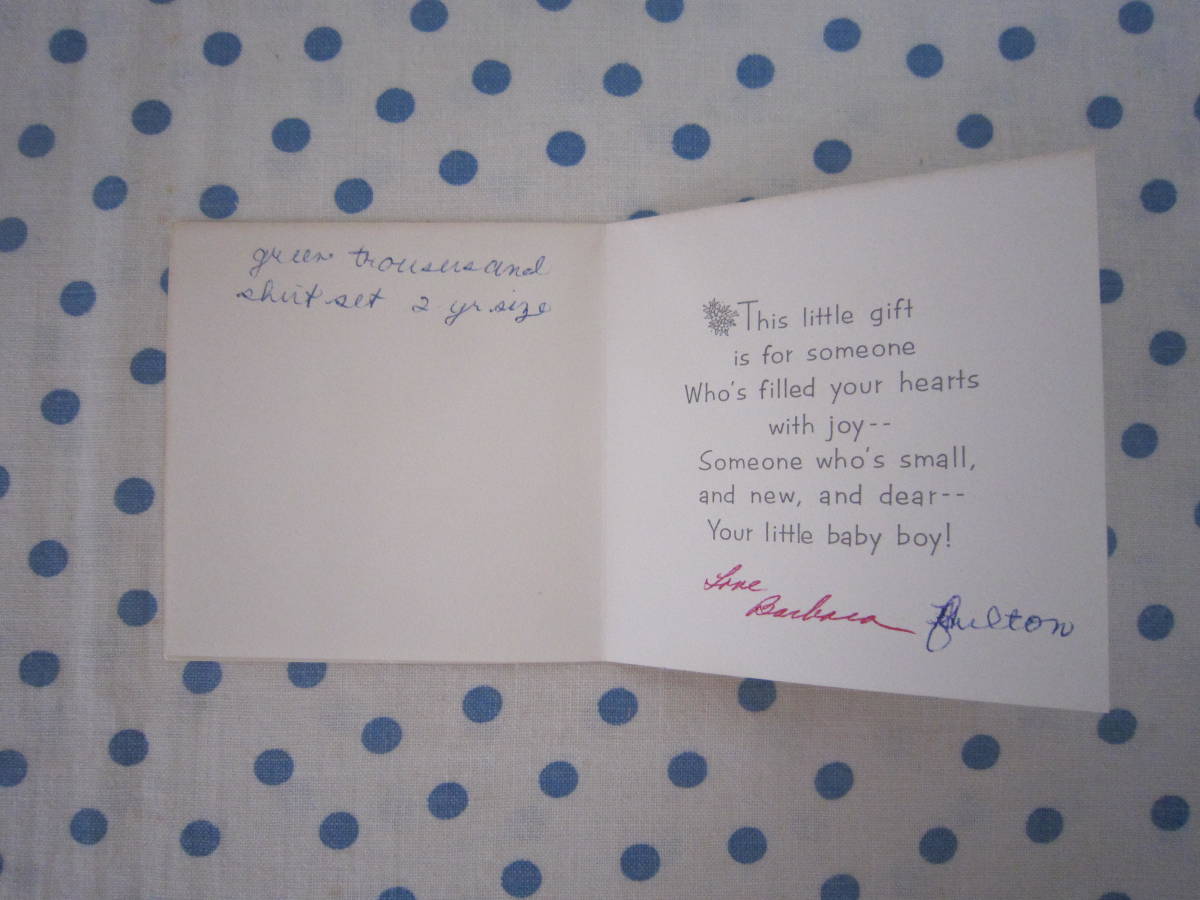 green trousers and
shirt set 2 yr. size
This little gift
is for someone
Who's filled your hearts
with joy--
Someone who's small,
and new, and dear--
Your little baby boy!
Love
Barbara